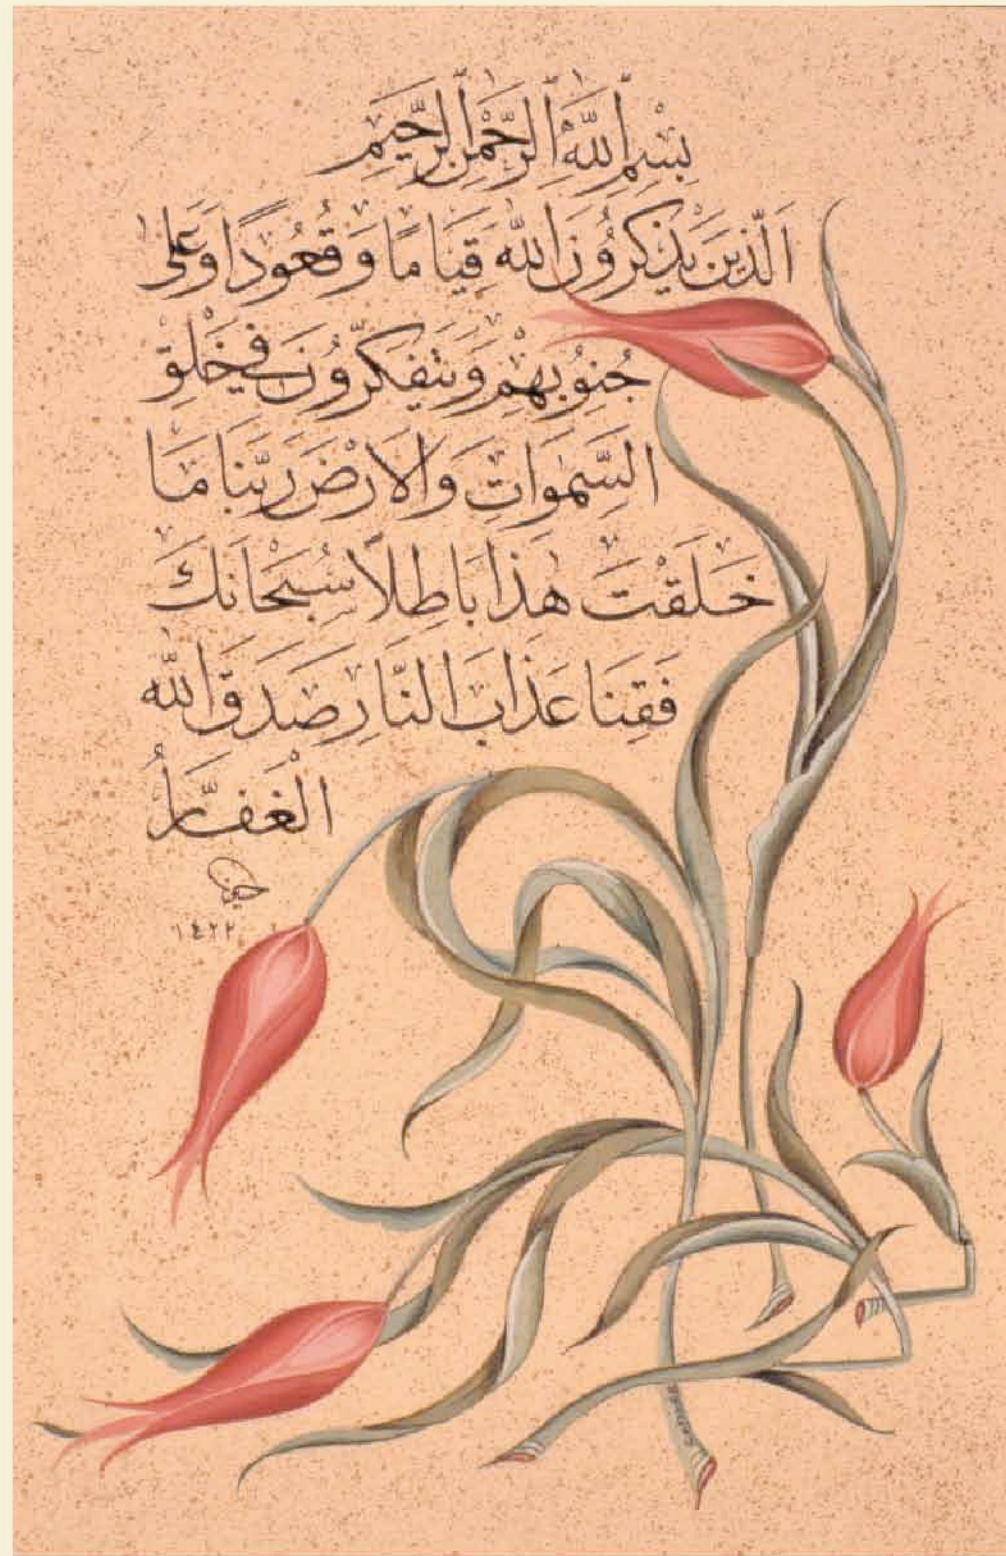 بِسْمِ ٱللَّهِ ٱلرَّحْمٰنِ ٱلرَّحِيمِ
اَلَّذِينَ يَذْكُرُونَ اللّٰهَ قِيَامًا وَقُعُودًا وَعَلٰى
جُنُوبِهِمْ وَيَتَفَكَّرُونَ فِي خَلْقِ
السَّمٰوَاتِ وَالْاَرْضِ رَبَّنَا مَا
خَلَقْتَ هٰذَا بَاطِلًا سُبْحَانَكَ
فَقِنَا عَذَابَ النَّارِ صَدَقَ اللّٰه
الْغَفَّارُ
١٤٢٢